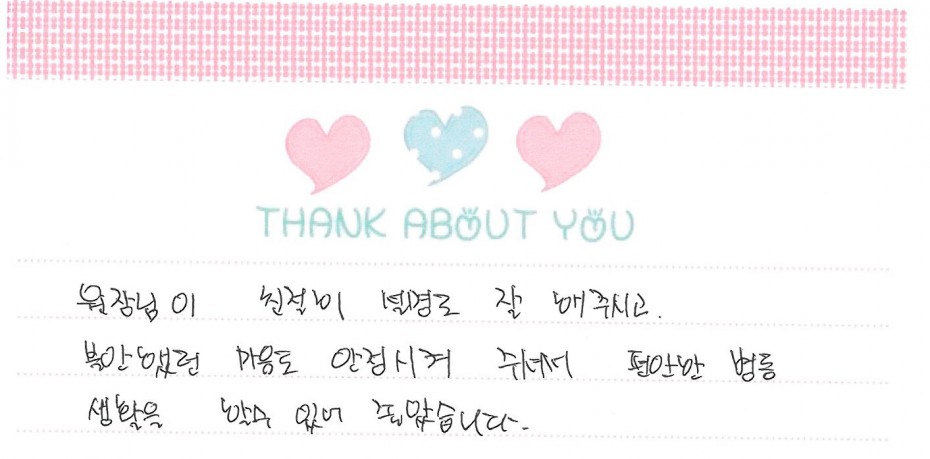 THANK ABOUT YOU
원장님이 친절히 설명도 잘 해주시고.
불안했던 마음도 안정시켜 주셔서 편안한 병동
생활을 할수 있어 좋았습니다.